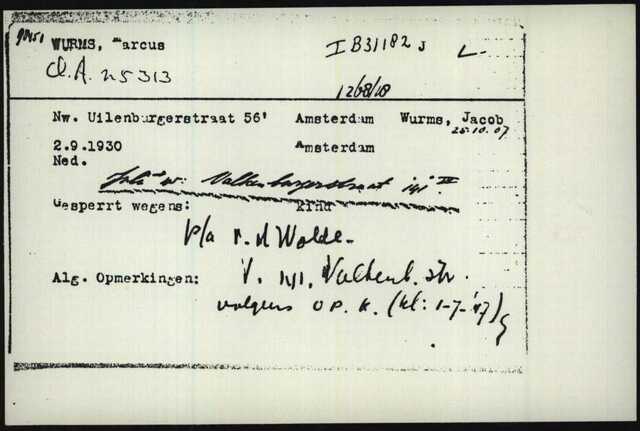 90451
WURMS, Marcus I B 31182 J L
Cl.A. 25313
1268/18
Nw. Uilenburgerstraat 56' Amsterdam Wurms, Jacob
25.10.07
2.9.1930 Amsterdam
Ned.
w: Valkenburgerstraat 141 II
Gesperrt wegens: kind
p/a v. d Wolde-
Alg. Opmerkingen: V. 141, Valkenb. str.
volgens O P. K. (kl: 1-7-'47)